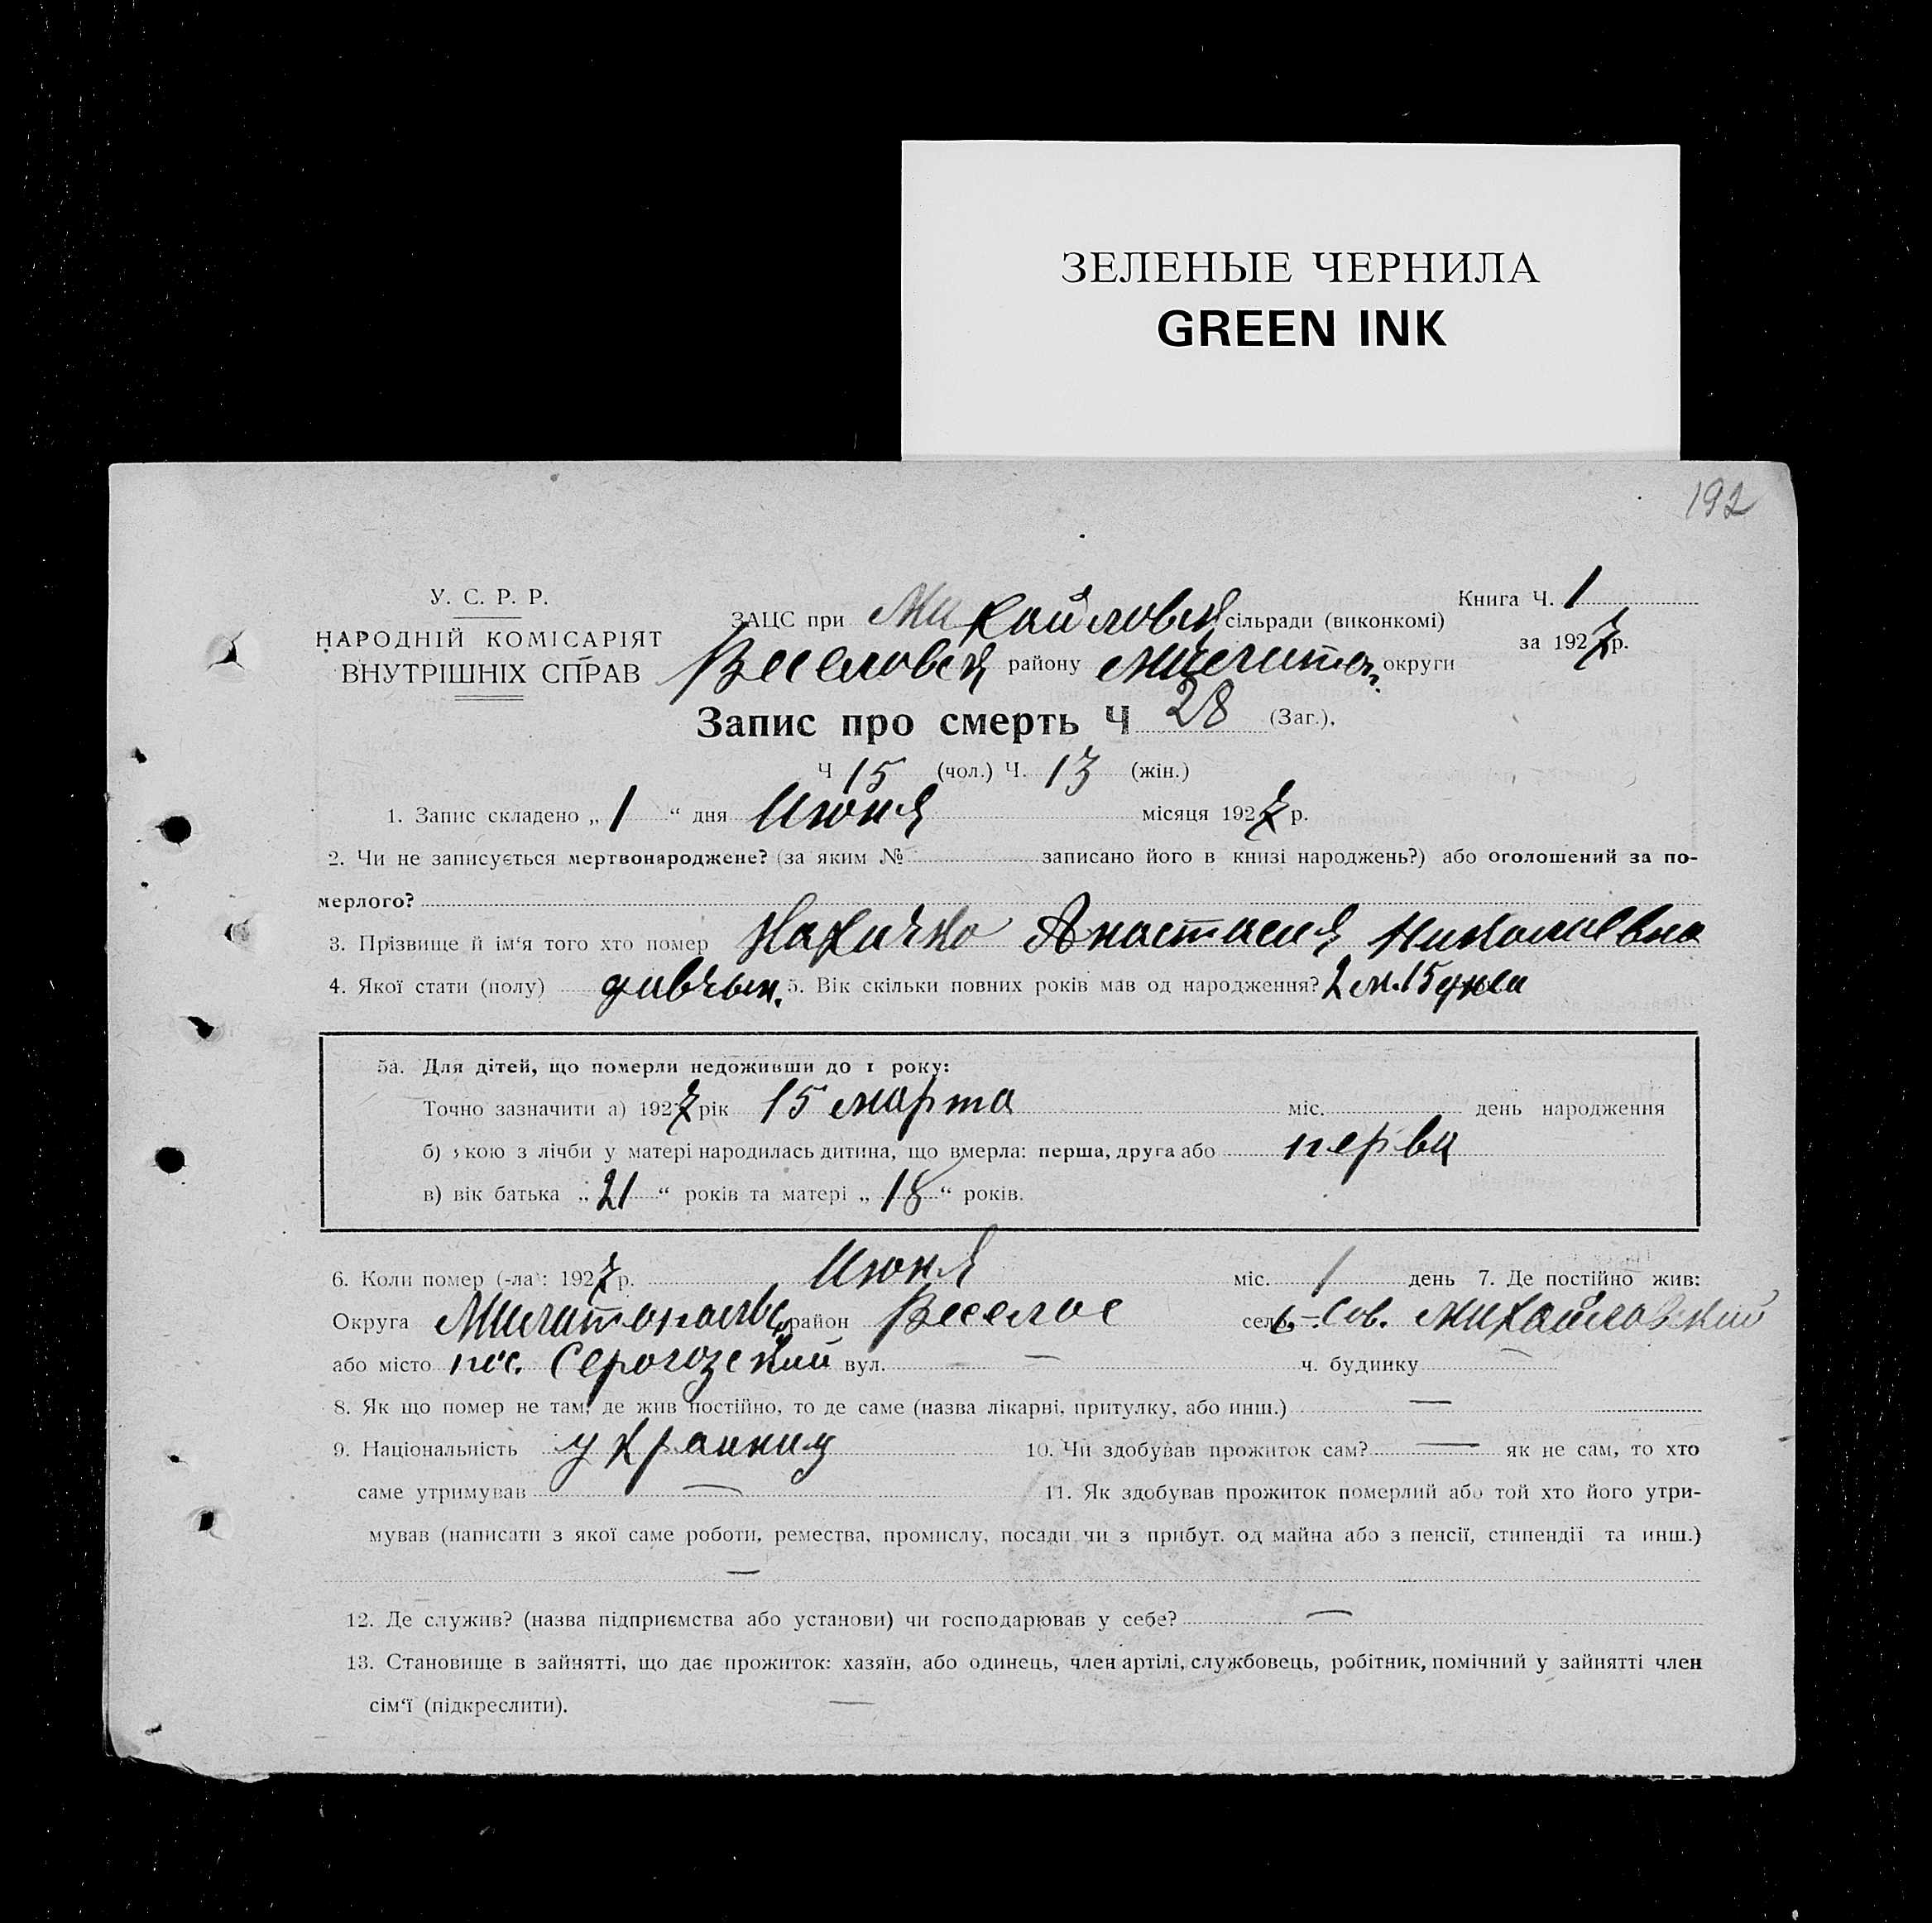 ЗЕЛЕНЫЕ ЧЕРНИЛА
GREEN INK
192
У. С. Р. Р.
НАРОДНІЙ КОМІСАРІЯТ
ВНУТРІШНІХ СПРАВ
Книга Ч. 1
за 1927 р.
ЗАЦС при Михайловск сільради (виконкомі)
Веселовск району Мелитоп. округи
Запис про смерть Ч 28 (Заг.),
Ч 15 (чол.) Ч. 13 (жін.)
1. Запис складено „ 1 “ дня Июня місяця 1927 р.
2. Чи не записується мертвонароджене? (за яким № записано його в книзі народжень?) або оголошений за по-
мерлого?
3. Прізвище й ім‘я того хто помер Анастасия Николаевна
4. Якої стати (полу) дивчын. 5. Вік скільки повних років мав од народження? 2 м. 15 дней
5а. Для дітей, що померли недоживши до 1 року:
Точно зазначити а) 1927 рік 15 марта міс. день народження
б) якою з лічби у матері народилась дитина, що вмерла: перша, друга або перва
в) вік батька „ 21 “ років та матері „ 18 “ років.
6. Коли помер (-ла): 1927 р. Июня міс. 1 день 7. Де постійно жив:
Округа район Веселое село Сов. Михайловский
або місто пос. Серогозский вул. — — ч. будинку —
8. Як що помер не там, де жив постійно, то де саме (назва лікарні, притулку, або инш.) —
9. Національність 10. Чи здобував прожиток сам? — як не сам, то хто
саме утримував — 11. Як здобував прожиток померлий або той хто його утри-
мував (написати з якої саме роботи, ремества, промислу, посади чи з прибут. од майна або з пенсії, стипендії та инш.)
—
12. Де служив? (назва підприємства або установи) чи господарював у себе? —
13. Становище в зайнятті, що дає прожиток: хазяїн, або одинець, член артілі, службовець, робітник, помічний у зайнятті член
сім‘ї (підкреслити). —